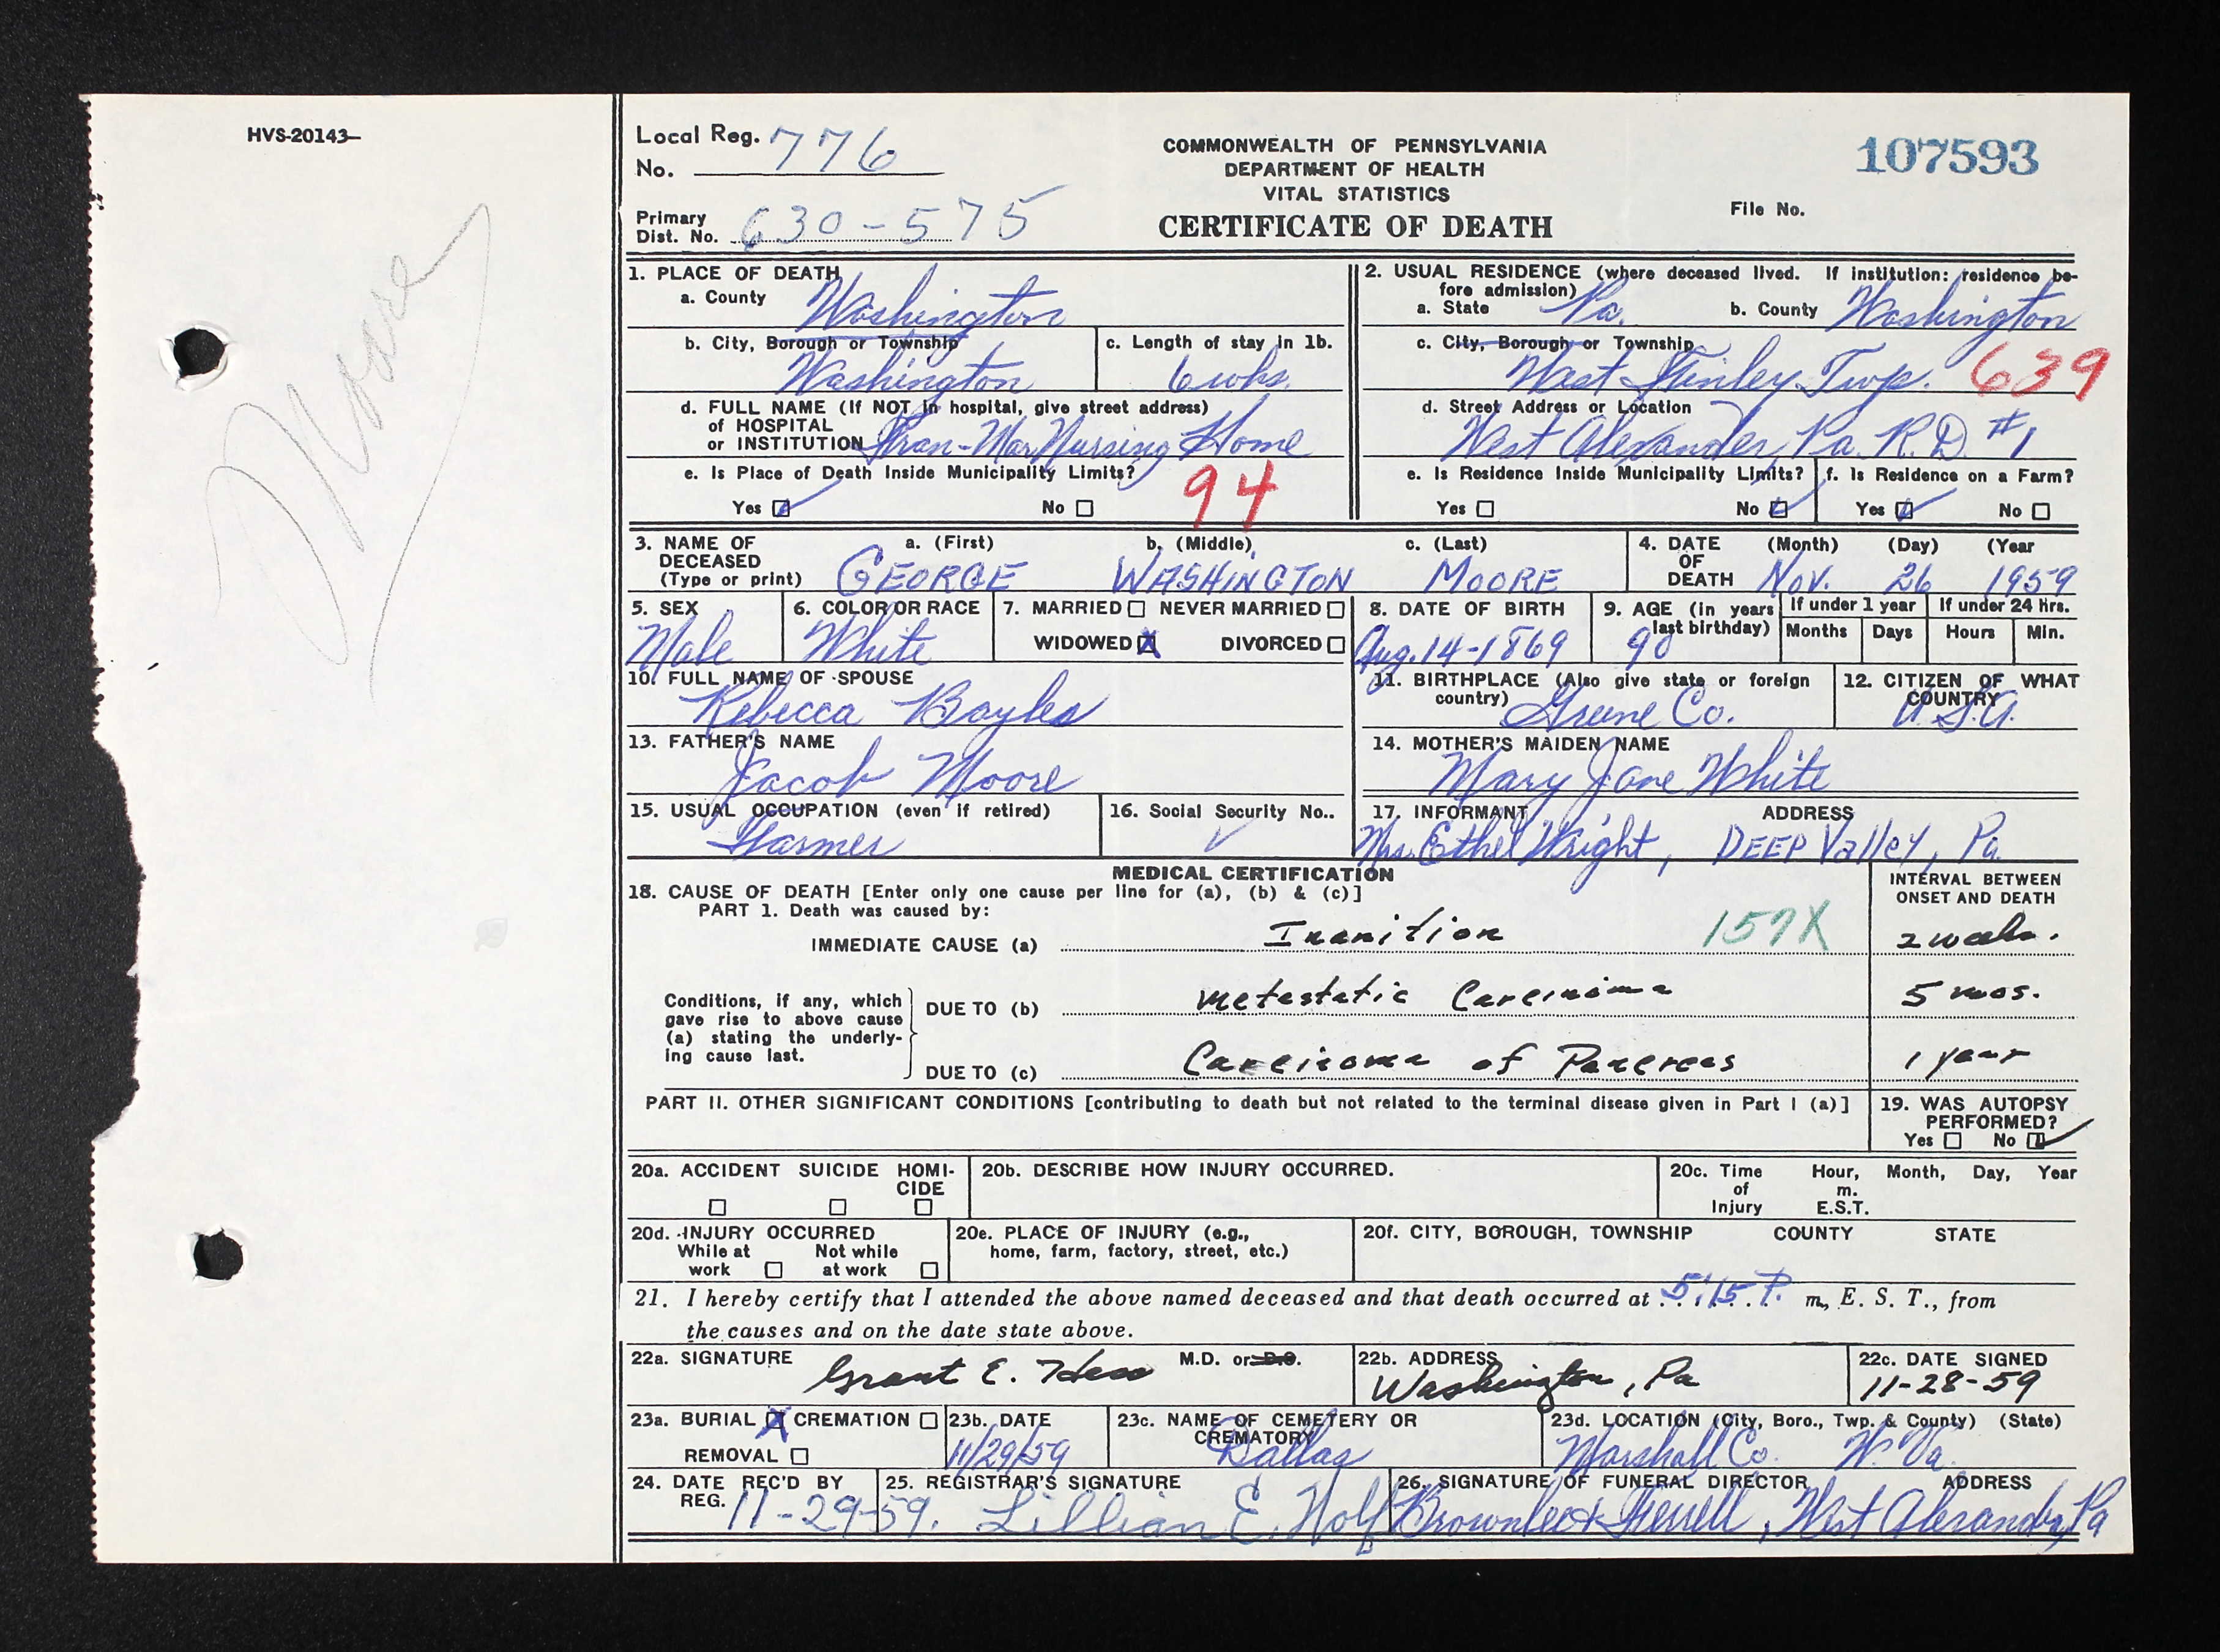 HVS-20143-
Moore
Local Reg. No. 776
COMMONWEALTH OF PENNSYLVANIA
DEPARTMENT OF HEALTH
VITAL STATISTICS
CERTIFICATE OF DEATH
107593
File No.
Primary Dist. No. 630-575
1. PLACE OF DEATH
a. County Washington
b. City, Borough or Township
Washington
c. Length of stay in 1b.
6 wks.
d. FULL NAME (If NOT in hospital, give street address)
of HOSPITAL
or INSTITUTION Fran-Mar Nursing Home
e. Is Place of Death Inside Municipality Limits?
94
Yes ☑ No ☐
2. USUAL RESIDENCE (where deceased lived. If institution: residence be-
fore admission)
a. State Pa. b. County Washington
c. City, Borough or Township
West Finley Twp. 639
d. Street Address or Location
West Alexander, Pa. R.D. #1
e. Is Residence Inside Municipality Limits?
Yes ☐ No ☑
f. Is Residence on a Farm?
Yes ☑ No ☐
3. NAME OF DECEASED (Type or print)
a. (First) b. (Middle) c. (Last)
GEORGE WASHINGTON MOORE
4. DATE OF DEATH (Month) (Day) (Year
Nov. 26 1959
5. SEX
Male
6. COLOR OR RACE
White
7. MARRIED ☐ NEVER MARRIED ☐
WIDOWED ☒ DIVORCED ☐
8. DATE OF BIRTH
Aug. 14-1869
9. AGE (in years last birthday)
90
If under 1 year
Months Days
If under 24 Hrs.
Hours Min.
10. FULL NAME OF SPOUSE
Rebecca Bayles
11. BIRTHPLACE (Also give state or foreign country)
Greene Co.
12. CITIZEN OF WHAT COUNTRY
U.S.A.
13. FATHER'S NAME
Jacob Moore
14. MOTHER'S MAIDEN NAME
Mary Jane White
15. USUAL OCCUPATION (even if retired)
Farmer
16. Social Security No..
17. INFORMANT ADDRESS
Mrs. Ethel Wright, DEEP Valley, Pa.
MEDICAL CERTIFICATION
INTERVAL BETWEEN ONSET AND DEATH
18. CAUSE OF DEATH [Enter only one cause per line for (a), (b) & (c)]
PART 1. Death was caused by:
IMMEDIATE CAUSE (a) Inanition 157X 2 weeks.
Conditions, if any, which
gave rise to above cause
(a) stating the underly-
ing cause last.
DUE TO (b) Metastatic Carcinoma 5 mos.
DUE TO (c) Carcinoma of Pancreas 1 year
PART II. OTHER SIGNIFICANT CONDITIONS [contributing to death but not related to the terminal disease given in Part I (a)]
19. WAS AUTOPSY PERFORMED?
Yes ☐ No ☑
20a. ACCIDENT SUICIDE HOMI-
CIDE
☐ ☐ ☐
20b. DESCRIBE HOW INJURY OCCURRED.
20c. Time of Injury Hour, m. E.S.T. Month, Day, Year
20d. INJURY OCCURRED
While at work ☐ Not while at work ☐
20e. PLACE OF INJURY (e.g.,
home, farm, factory, street, etc.)
20f. CITY, BOROUGH, TOWNSHIP COUNTY STATE
21. I hereby certify that I attended the above named deceased and that death occurred at 5:15 P. m., E. S. T., from
the causes and on the date state above.
22a. SIGNATURE Grant E. Hess M.D. or D.O.
22b. ADDRESS
Washington, Pa
22c. DATE SIGNED
11-28-59
23a. BURIAL ☒ CREMATION ☐
REMOVAL ☐
23b. DATE
11/29/59
23c. NAME OF CEMETERY OR CREMATORY
Dallas
23d. LOCATION (City, Boro., Twp. & County) (State)
Marshall Co. W. Va.
24. DATE REC'D BY REG. 11-29-59.
25. REGISTRAR'S SIGNATURE
Lillian E. Wolf
26. SIGNATURE OF FUNERAL DIRECTOR ADDRESS
Brownlee & Ferrell, West Alexander, Pa